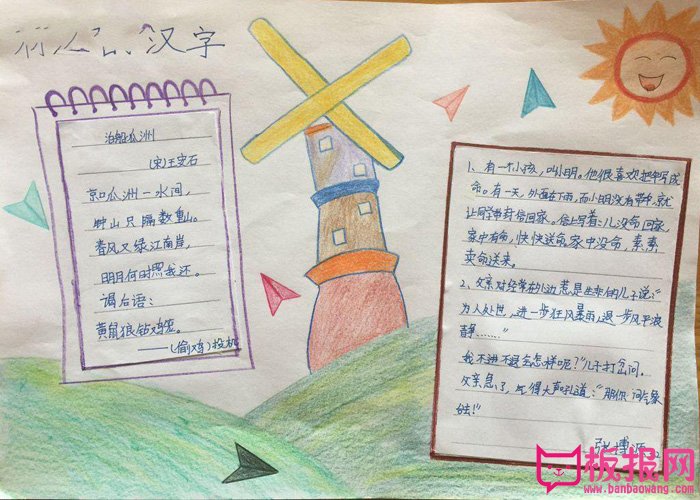 汉字
泊船瓜洲
(宋)王安石
京口瓜洲一水间,
钟山只隔数重山。
春风又绿江南岸,
明月何时照我还。
谒后语:
黄鼠狼钻鸡笼。
——(偷鸡)投机
1、有一个小孩,叫小明。他很喜欢把伞写成
命。有一天,外面在下雨,而小明没有带伞,就
让同学带封信回家。信上写着:儿没命回家,
家中有命,快快送命,家中没命,素素
卖命送来。
2、父亲对经常在外边惹是生非的儿子说:“
为人处世,进一步狂风暴雨,退一步风平浪
静……”
我不进不退会怎样呢?”儿子打岔问。
父亲急了,大声引道:“那你问气象
张博源
板报网
www.banbaowang.com